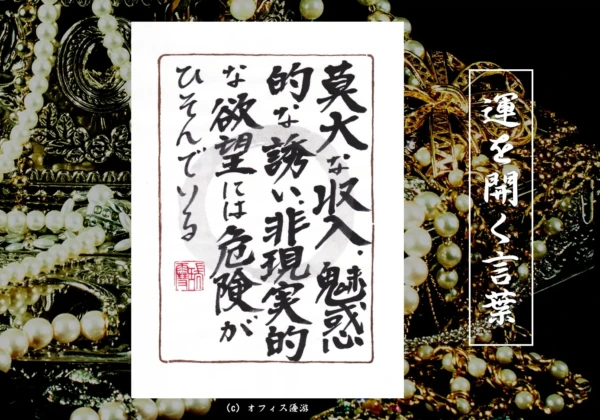 運を開く言葉
莫大な収入、魅惑
的な誘い、非現実的
な欲望には危険が
ひそんでいる
(C) オフィス優游